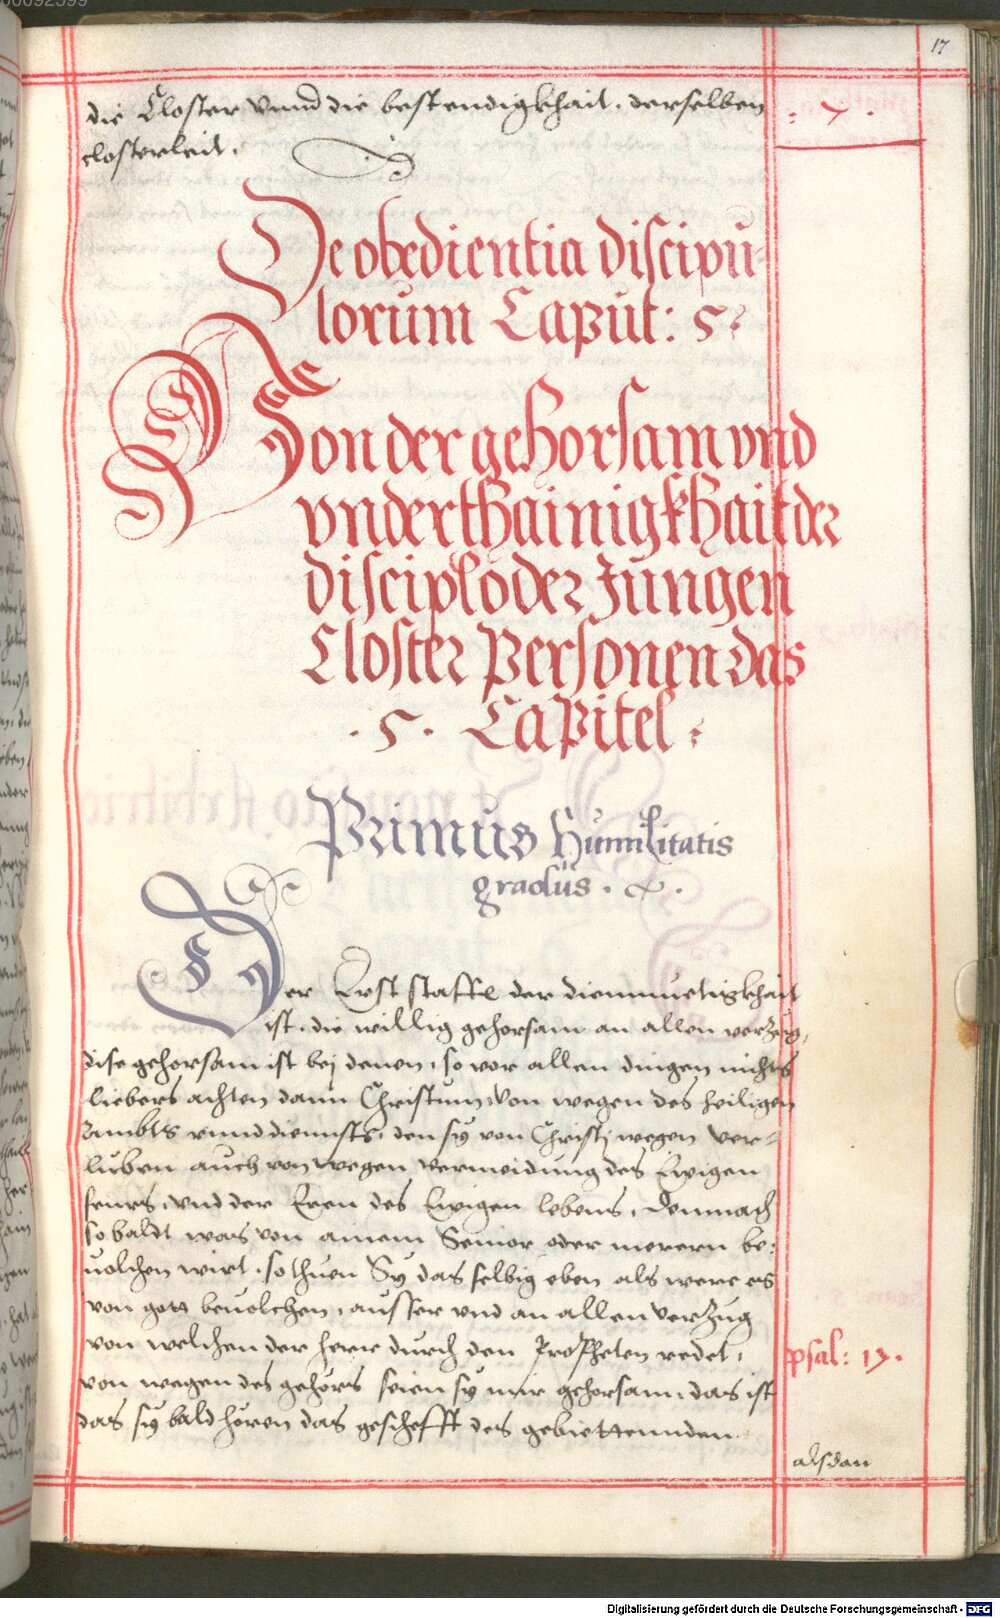 00092599
17
die Closter vnnd die bestendigkhait, derselben
closterleit.
De obedientia discipu-
lorum Caput: 5.
Von der gehorsam vnd
vnderthainigkhait der
discipl oder Jungen
Closter Personen das
.5. Capitel.
Primus Humilitatis
gradus.
Der Erst staffel der diemmuetigkhait
ist, die willig gehorsam an allen verzug,
dise gehorsam ist bej denen, so vor allen dingen nichts
liebers achten dann Christum, von wegen des heiligen
Ambts vnnd diennsts, den sÿ von Christj wegen ver-
luben auch von wegen vermeidung des Ewigen
feurs, vnd der Eren des Ewigen lebens, Demnach
so baldt was von ainem Senior oder merern be-
uolchen wirt, so thuen Sÿ das selbig eben als were es
von gott beuolchen, ausser vnd an allen verzug
von welchen der herr durch den Propheten redet,
von wegen des gehörs seien sÿ mir gehorsam, das ist
das sÿ bald hören das geschefft des gebiettennden.
psal: 17.
alsdan
Digitalisierung gefördert durch die Deutsche Forschungsgemeinschaft - DFG